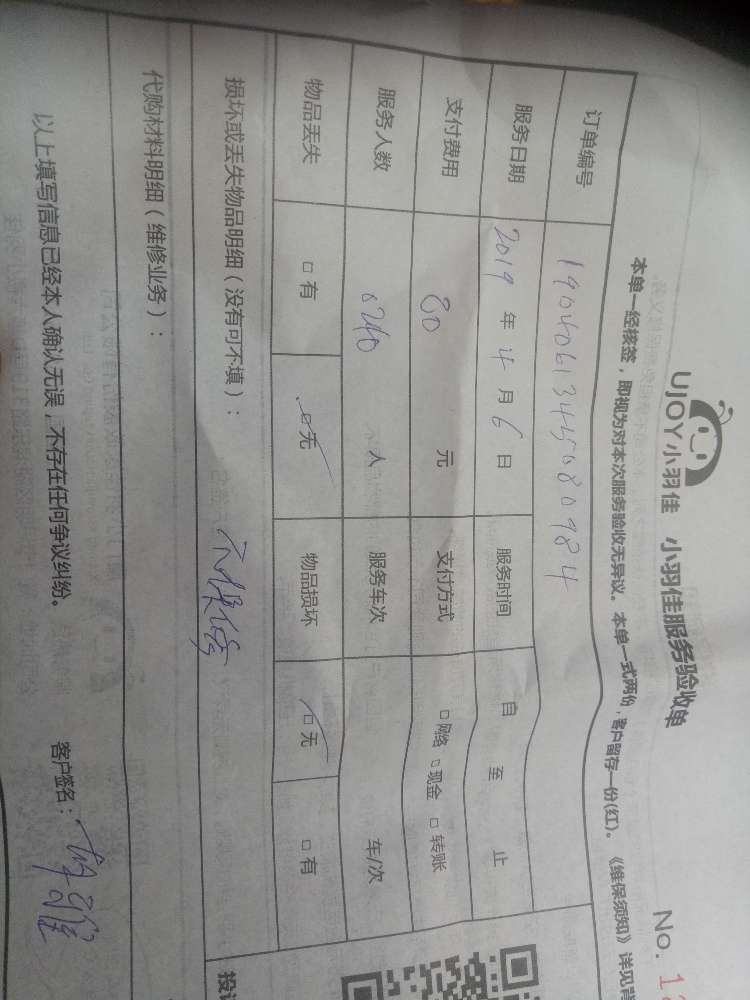 UJOY小羽佳 小羽佳服务验收单
No. 1
本单一经核签，即视为对本次服务验收无异议。本单一式两份，客户留存一份(红)。《维保须知》详见背
订单编号 19040613445080984
服务日期 2019年4月6日 服务时间 自 至 止
支付费用 80 元 支付方式 □网络 □现金 □转账
服务人数 人 服务车次 车/次
物品丢失 □有 □无 物品损坏 □无 □有
损坏或丢失物品明细（没有可不填）：
代购材料明细（维修业务）：
以上填写信息已经本人确认无误，不存在任何争议纠纷。 客户签名：